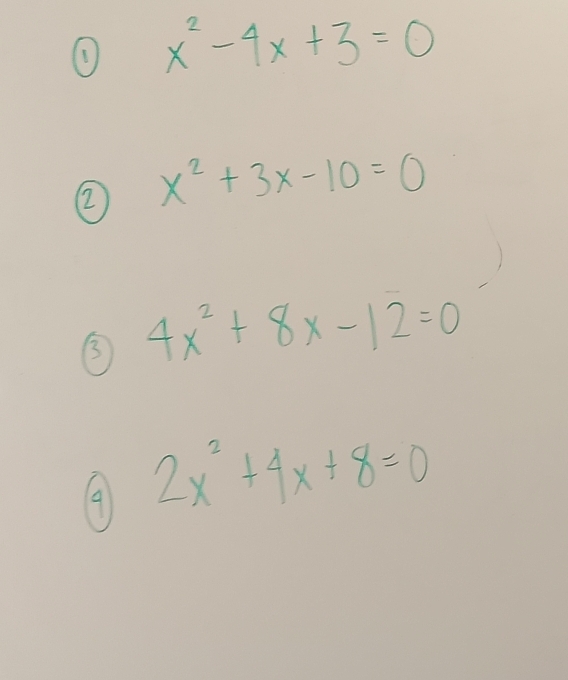 ① x² - 4x + 3 = 0
② x² + 3x - 10 = 0
③ 4x² + 8x - 12 = 0
④ 2x² + 4x + 8 = 0